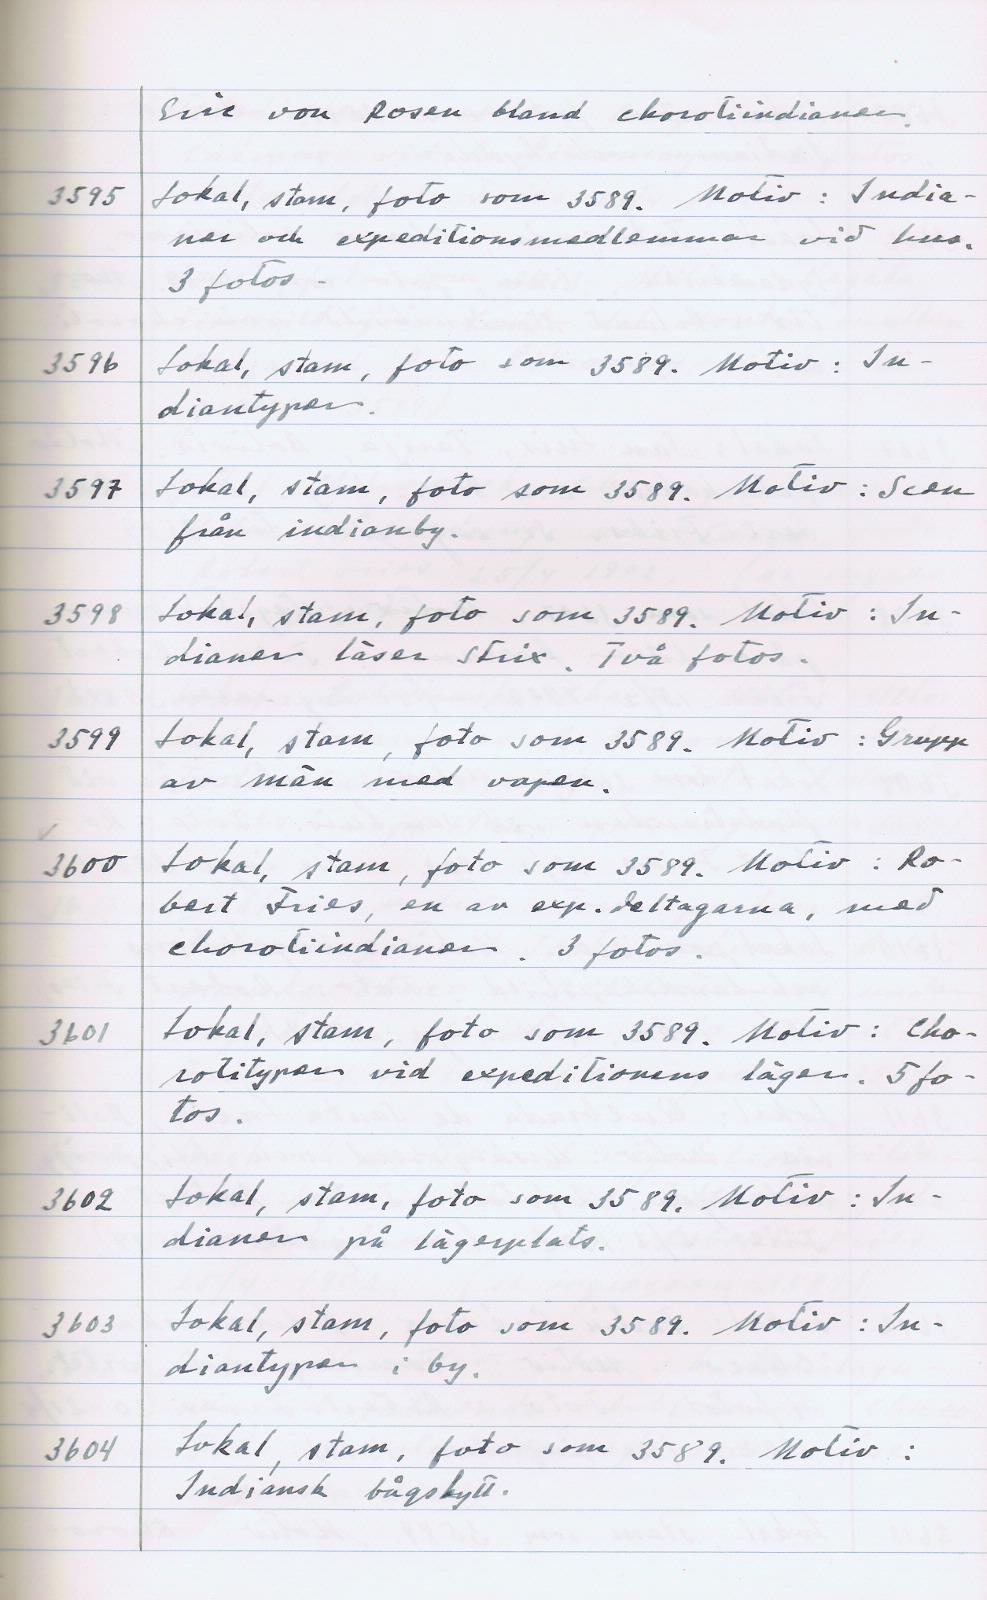 Eric von Rosen bland chorotiindianer.
3595 Lokal, stam, foto som 3589. Motiv : India-
ner och expeditionsmedlemmar vid hus.
3 fotos -
3596 Lokal, stam, foto som 3589. Motiv : In-
diantyper.
3597 Lokal, stam, foto som 3589. Motiv : Scen
från indianby.
3598 Lokal, stam, foto som 3589. Motiv : In-
dianer läser Strix. Två fotos.
3599 Lokal, stam, foto som 3589. Motiv : Grupp
av män med vapen.
3600 Lokal, stam, foto som 3589. Motiv : Ro-
bert Fries, en av exp. deltagarna, med
chorotiindianer. 3 fotos.
3601 Lokal, stam, foto som 3589. Motiv : Cho-
rotityper vid expeditionens läger. 5 fo-
tos.
3602 Lokal, stam, foto som 3589. Motiv : In-
dianer på lägerplats.
3603 Lokal, stam, foto som 3589. Motiv : In-
diantyper i by.
3604 Lokal, stam, foto som 3589. Motiv :
Indiansk bågskytt.